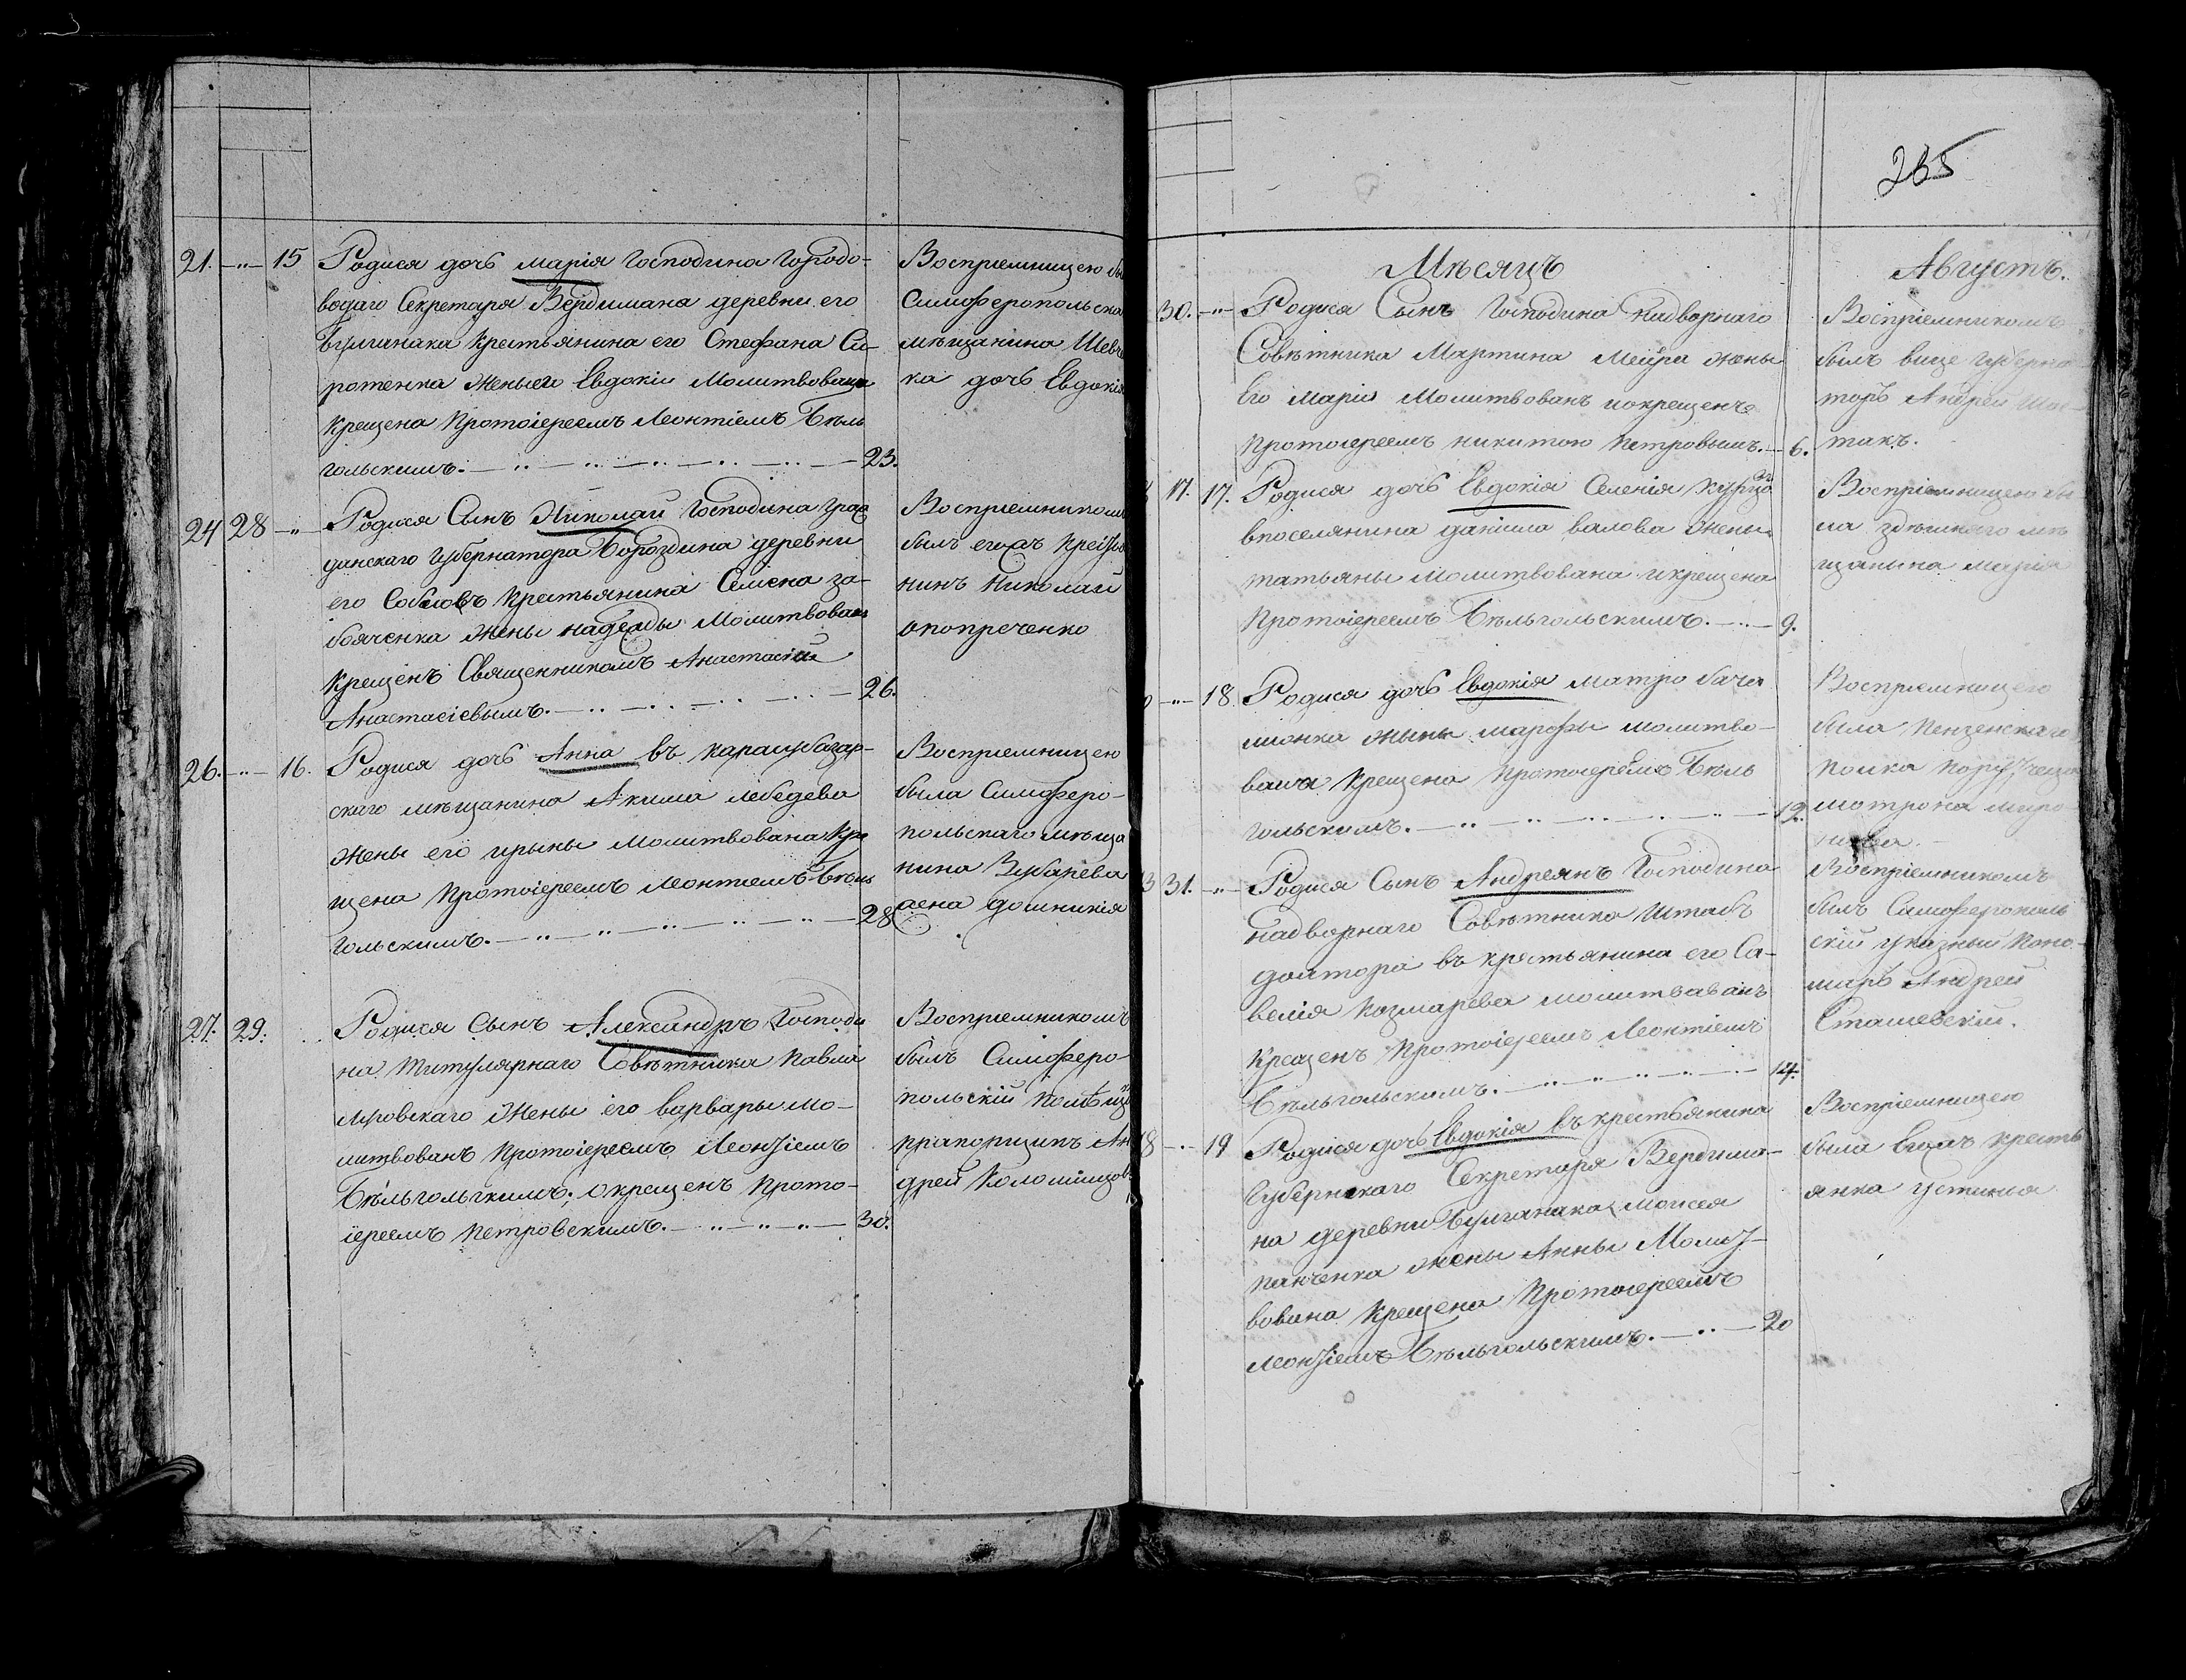 21. —..— 15 Родися дочь Марія Господина
водаго Секретаря Вердимана деревни его
булганака Крестьянина его Стефана Си-
ротенка жены его Евдокіи Молитвована
Крещена Протоіереемъ Леонтіемъ Бѣль
гольскимъ. — 23.
Воспріемницею бы
Симферопольска
мѣщанина Шевч
ка дочь Евдокія
24 28 —..— Родися Сынъ Николай Господина граж
данскаго Губернатора Бороздина деревни
его Сабловъ Крестьянина Семена за-
бояченка жены надежды Молитвованъ
Крещенъ Священникомъ Анастасіи
Анастасіевымъ. — 26.
Воспріемникомъ
былъ егожъ Крестья
нинъ Николай
26. —..— 16. Родися дочь Анна въ карасубазар-
скаго мѣщанина Акима лебедева
жены его ирыны Молитвована Кре
щена Протоіереемъ Леонтіемъ Бѣль
гольскимъ. — 28
Воспріемницею
была Симферо-
польскаго мѣща
нина Зубарева
жена домникія
27. 29. .. Родися Сынъ Александръ Господи
на Титулярнаго Совѣтника Павла
жены его варвары мо-
литвованъ Протоіереемъ Леонтіемъ
Бѣльгольскимъ; окрещенъ Прото-
іереемъ Петровскимъ. — 30.
Воспріемникомъ
былъ Симферо-
польскій помѣщи
прапорщикъ Ан
дрей Коломійцов
265
Мѣсяцъ Августъ.
30. —..— Родися Сынъ Господина Надворнаго
Совѣтника Мартина Мейра жены
Его Маріи Молитвованъ иокрещенъ
Протоіереемъ никитою Петровымъ. — 6.
Воспріемникомъ
былъ вице губерна
торъ Андрей Шос-
такъ.
17. 17. Родися дочь Евдокія Селенія Курцо
впоселянина данiила валова жены
татьяны Молитвована икрещена
Протоіереемъ Бѣльгольскимъ. — 9.
Воспріемницею бы
ла здѣшняго мѣ
щанина Марія
—..— 18. Родися дочь Евдокія матро бача
жены марфы молитво-
вана Крещена Протоіереемъ Бѣль
гольскимъ. — 12.
Воспріемницею
была Пензенскаго
полка
мотрона миро-
нова.
3 31. —..— Родися Сынъ Андреянъ Господина
надворнаго Совѣтника Штабъ
доктора въ крестьянина его Са-
велія Козмарева молитвованъ
Крещенъ Протоіереемъ Леонтіемъ
Бѣльгольскимъ. — 14.
Воспріемникомъ
былъ Симферополь
скій указный Поно-
марь Андрей
Сташевскій.
18 —..— 19 Родися дочь Евдокія въ крестьянина
Губернскаго Секретаря Вердима-
на деревни Булганака, Моисея
Панченка жены Анны Молит-
вована Крещена Протоіереемъ
Леонтіемъ Бѣльгольскимъ. — 20
Воспріемницею
была Егожъ кресть
янка устинья